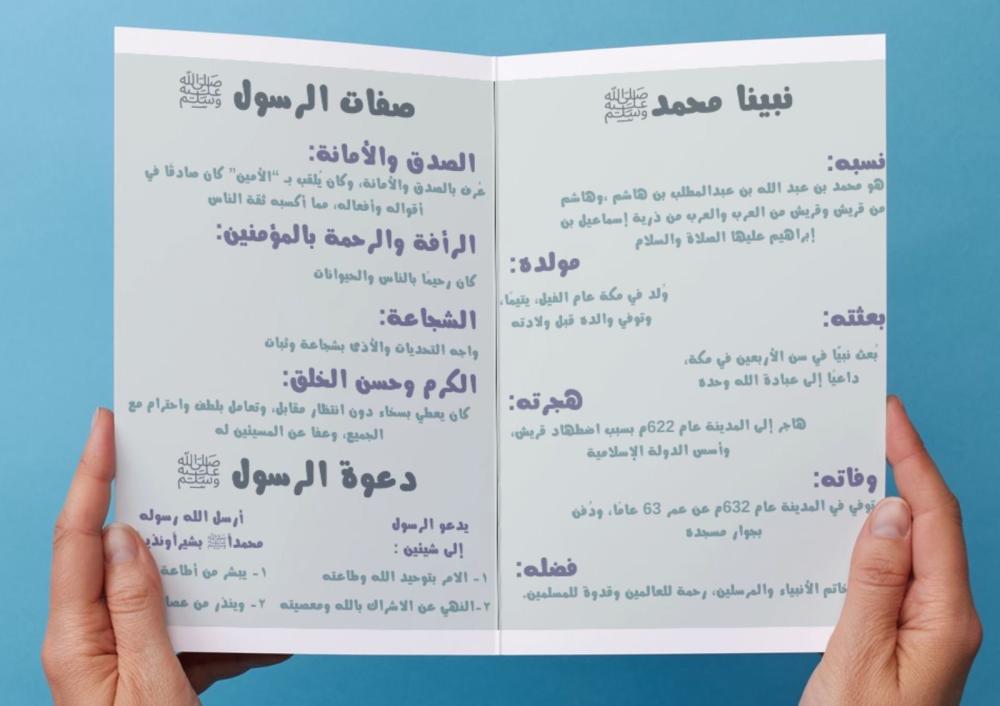 نبينا محمد ﷺ
نسبه:
هو محمد بن عبد الله بن عبدالمطلب بن هاشم ,وهاشم
من قريش وقريش من العرب والعرب من ذرية إسماعيل بن
إبراهيم عليها الصلاة والسلام
مولدة:
وُلد في مكة عام الفيل، يتيمًا،
وتوفي والدة قبل ولادته
بعثته:
بُعث نبيًا في سن الأربعين في مكة،
داعيًا إلى عبادة الله وحدة
هجرته:
هاجر إلى المدينة عام 622م بسبب اضطهاد قريش،
وأسس الدولة الإسلامية
وفاته:
توفي في المدينة عام 632م عن عمر 63 عامًا، ودُفن
بجوار مسجدة
فضله:
خاتم الأنبياء والمرسلين، رحمة للعالمين وقدوة للمسلمين.
صفات الرسول ﷺ
الصدق والأمانة:
عُرف بالصدق والأمانة، وكان يُلقب بـ "الأمين" كان صادقًا في
أقواله وأفعاله، مما أكسبه ثقة الناس
الرأفة والرحمة بالمؤمنين:
كان رحيمًا بالناس والحيوانات
الشجاعة:
واجه التحديات والأذى بشجاعة وثبات
الكرم وحسن الخلق:
كان يعطي بسخاء دون انتظار مقابل، وتعامل بلطف واحترام مع
الجميع، وعفا عن المسيئين له
دعوة الرسول ﷺ
يدعو الرسول
إلى شيئين :
١- الامر بتوحيد الله وطاعته
٢-النهي عن الاشراك بالله ومعصيته
أرسل الله رسوله
محمداًﷺ بشيراً
١- يبشر من
٢- وينذر من